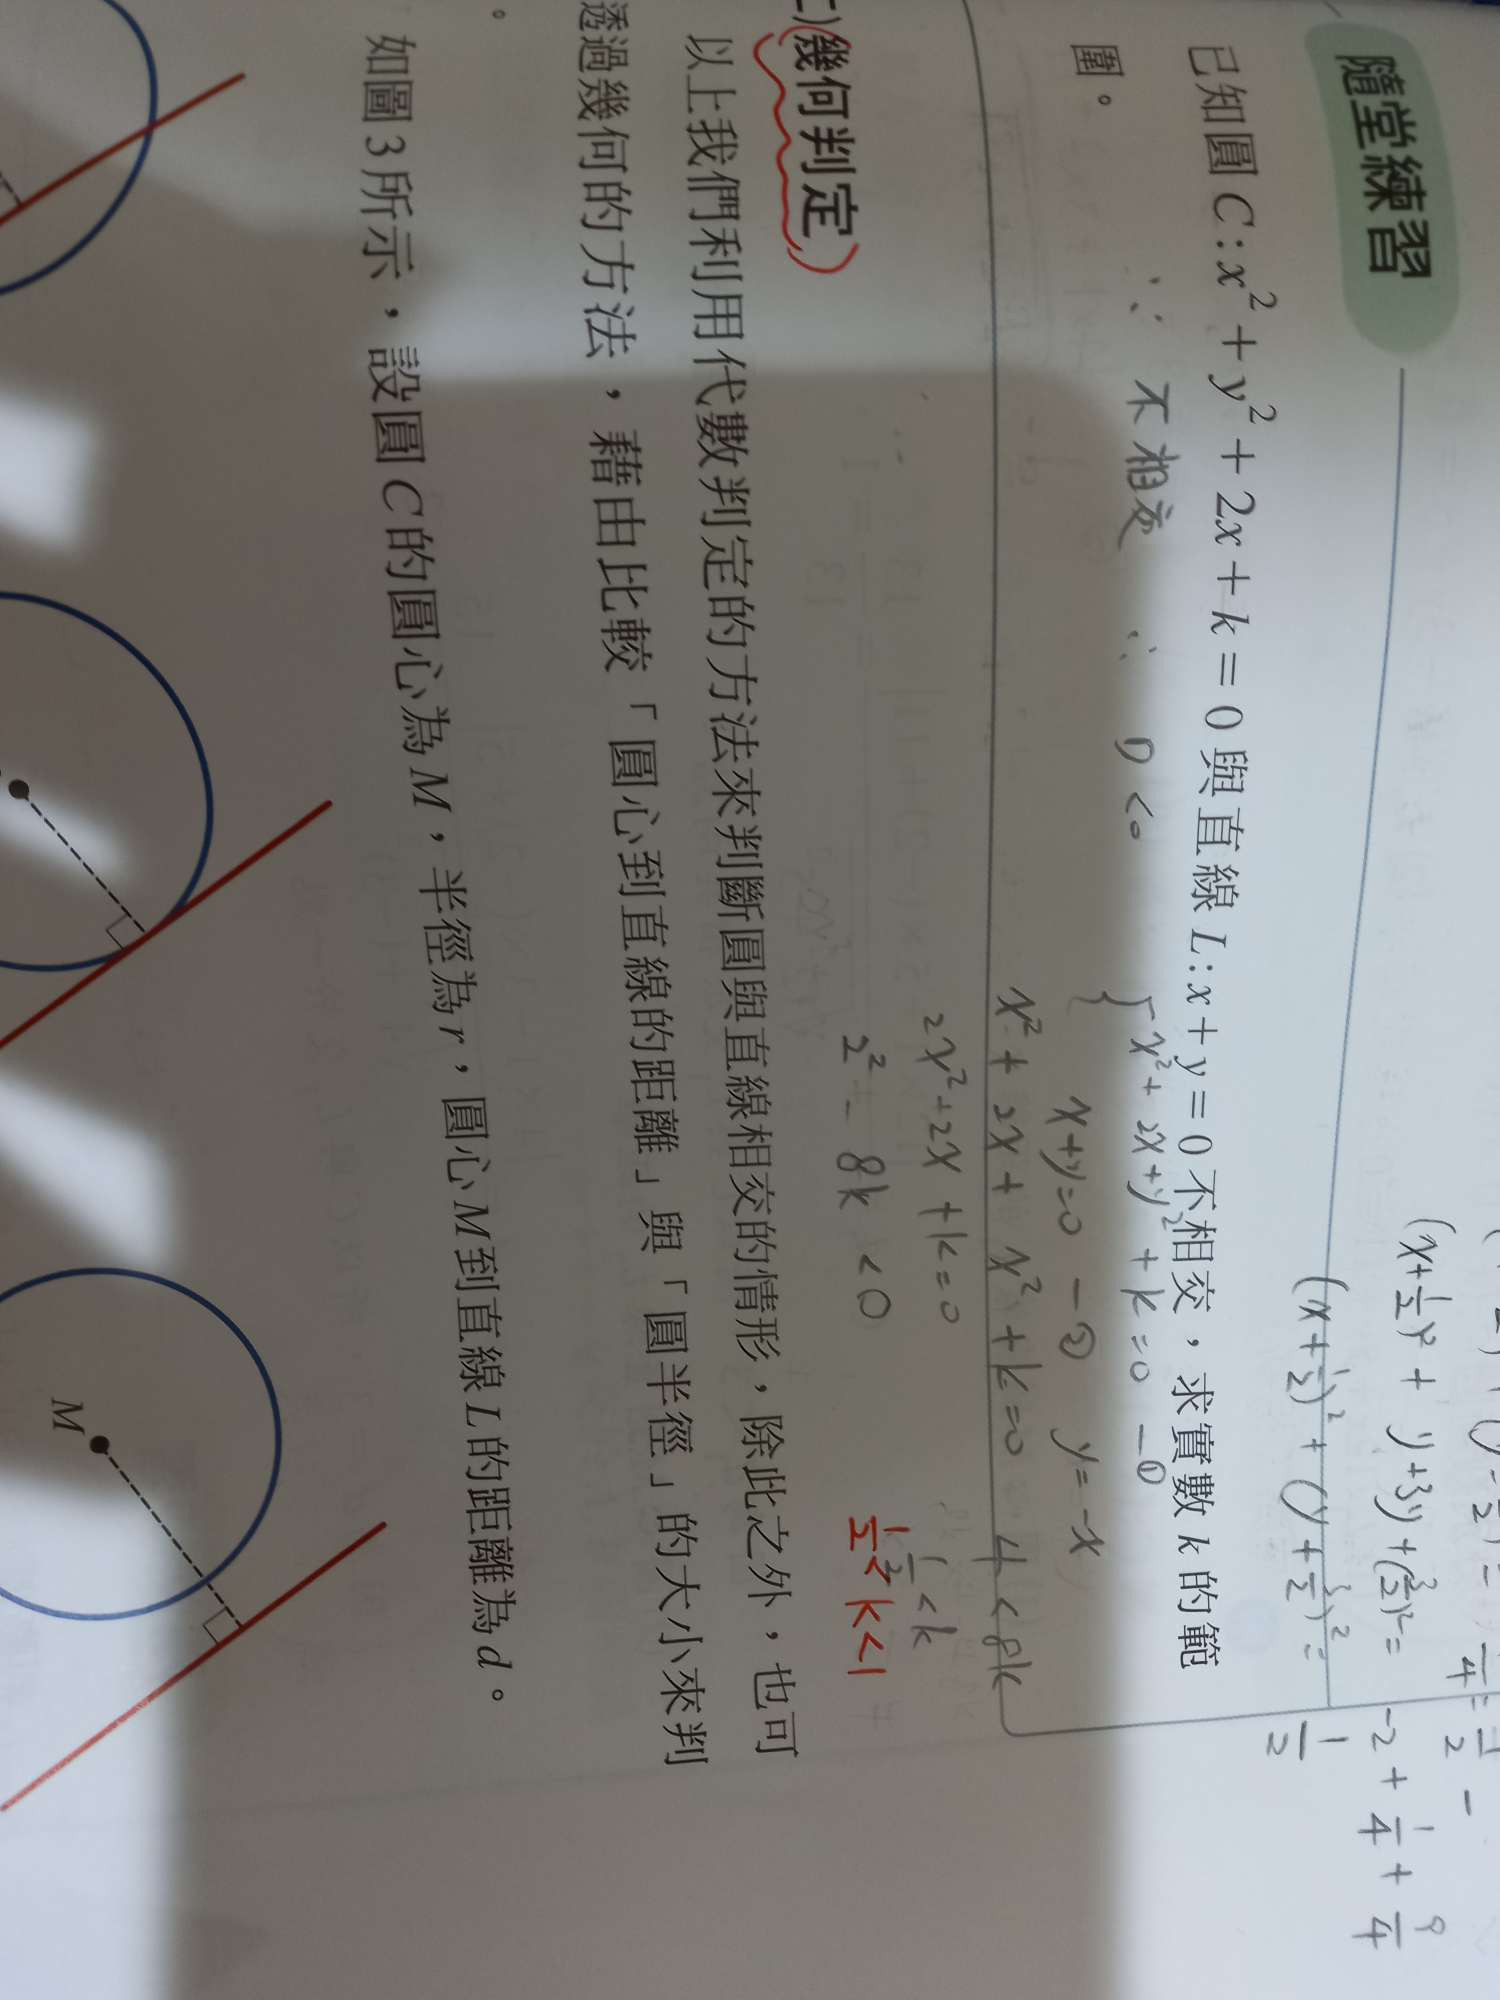 隨堂練習
已知圓 C : x² + y² + 2x + k = 0 與直線 L : x + y = 0 不相交，求實數 k 的範
圍。
∵ 不相交 ∴ D < 0
x² + 2x + y² + k = 0 — ①
x + y = 0 — ② y = -x
x² + 2x + x² + k = 0 4 < 8k
2x² + 2x + k = 0 1/2 < k
2² - 8k < 0 1/2 < k < 1
(x + 1/2)² + y + 3y + (3/2)² = -2 + 1/4 + 9/4
(x + 1/2)² + (y + 3/2)² = 1/2
)幾何判定
以上我們利用代數判定的方法來判斷圓與直線相交的情形，除此之外，也可
透過幾何的方法，藉由比較「圓心到直線的距離」與「圓半徑」的大小來判
。
如圖 3 所示，設圓 C 的圓心為 M，半徑為 r，圓心 M 到直線 L 的距離為 d。
M